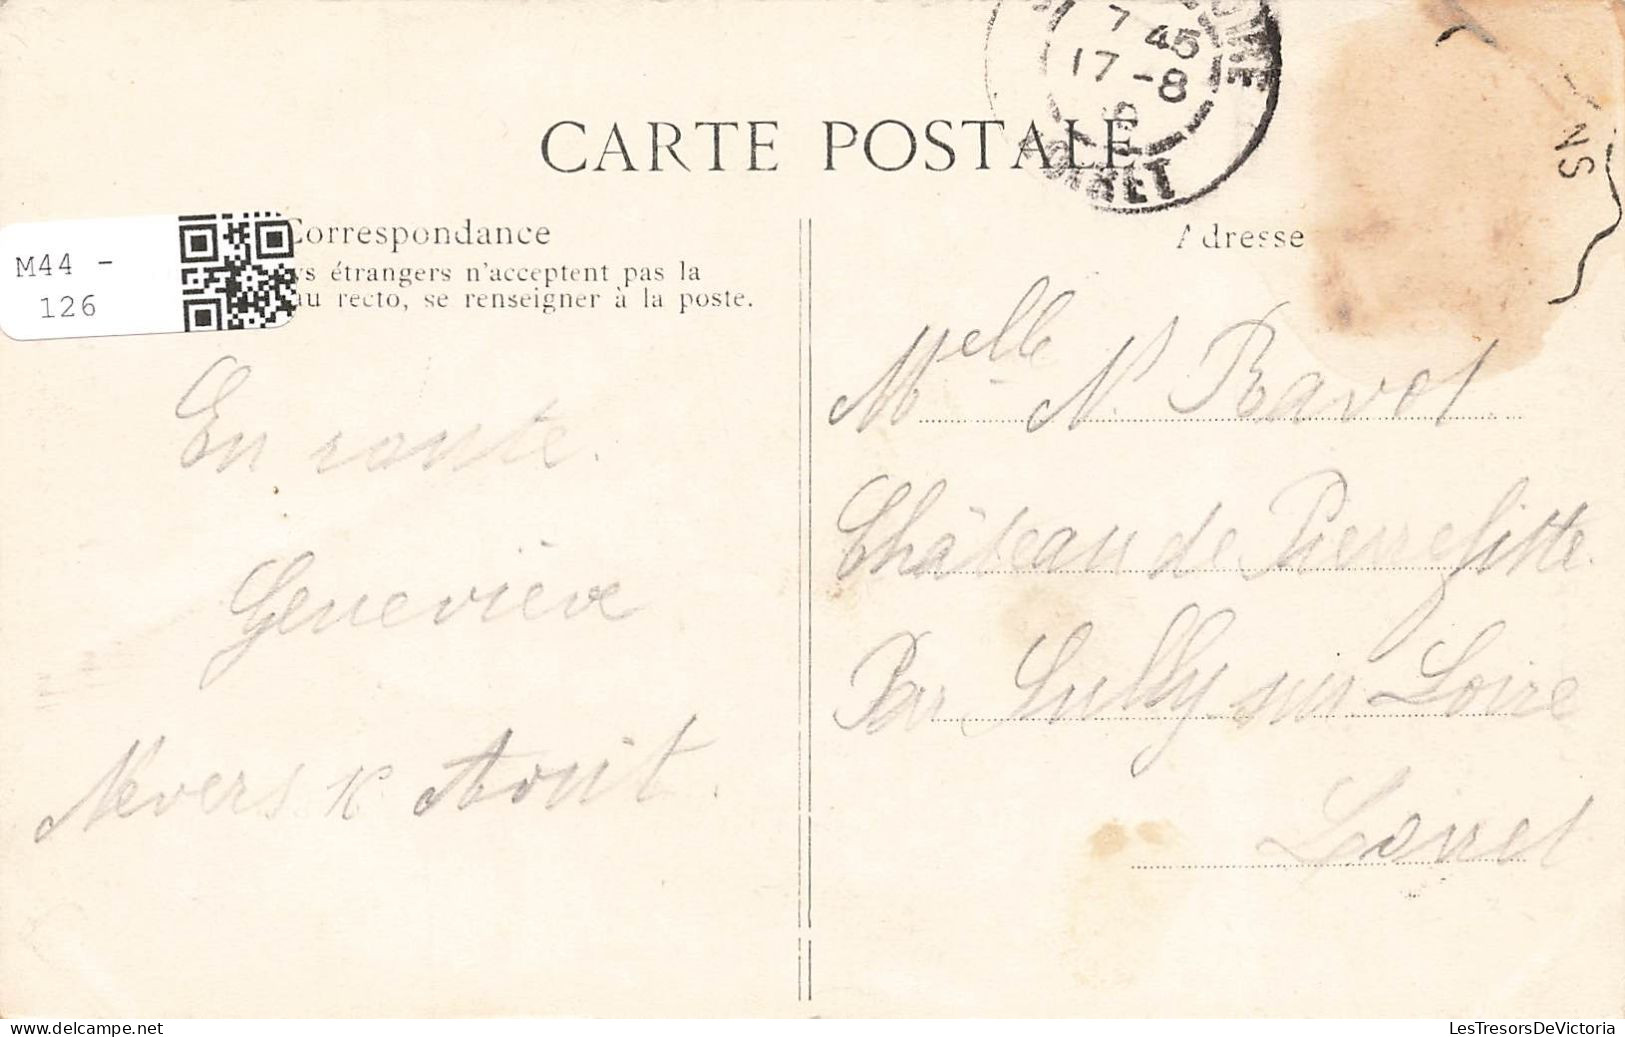 7 45
17-8
LOIRET
NS
CARTE POSTALE
Correspondance
étrangers n'acceptent pas la
au recto, se renseigner à la poste.
M44 -
126
Adresse
En route.
Geneviève
Nevers 16 Août.
Melle N. Ravot.
Château de Pierrefitte.
Par Sully sur Loire
Loiret
LesTresorsDeVictoria
www.delcampe.net